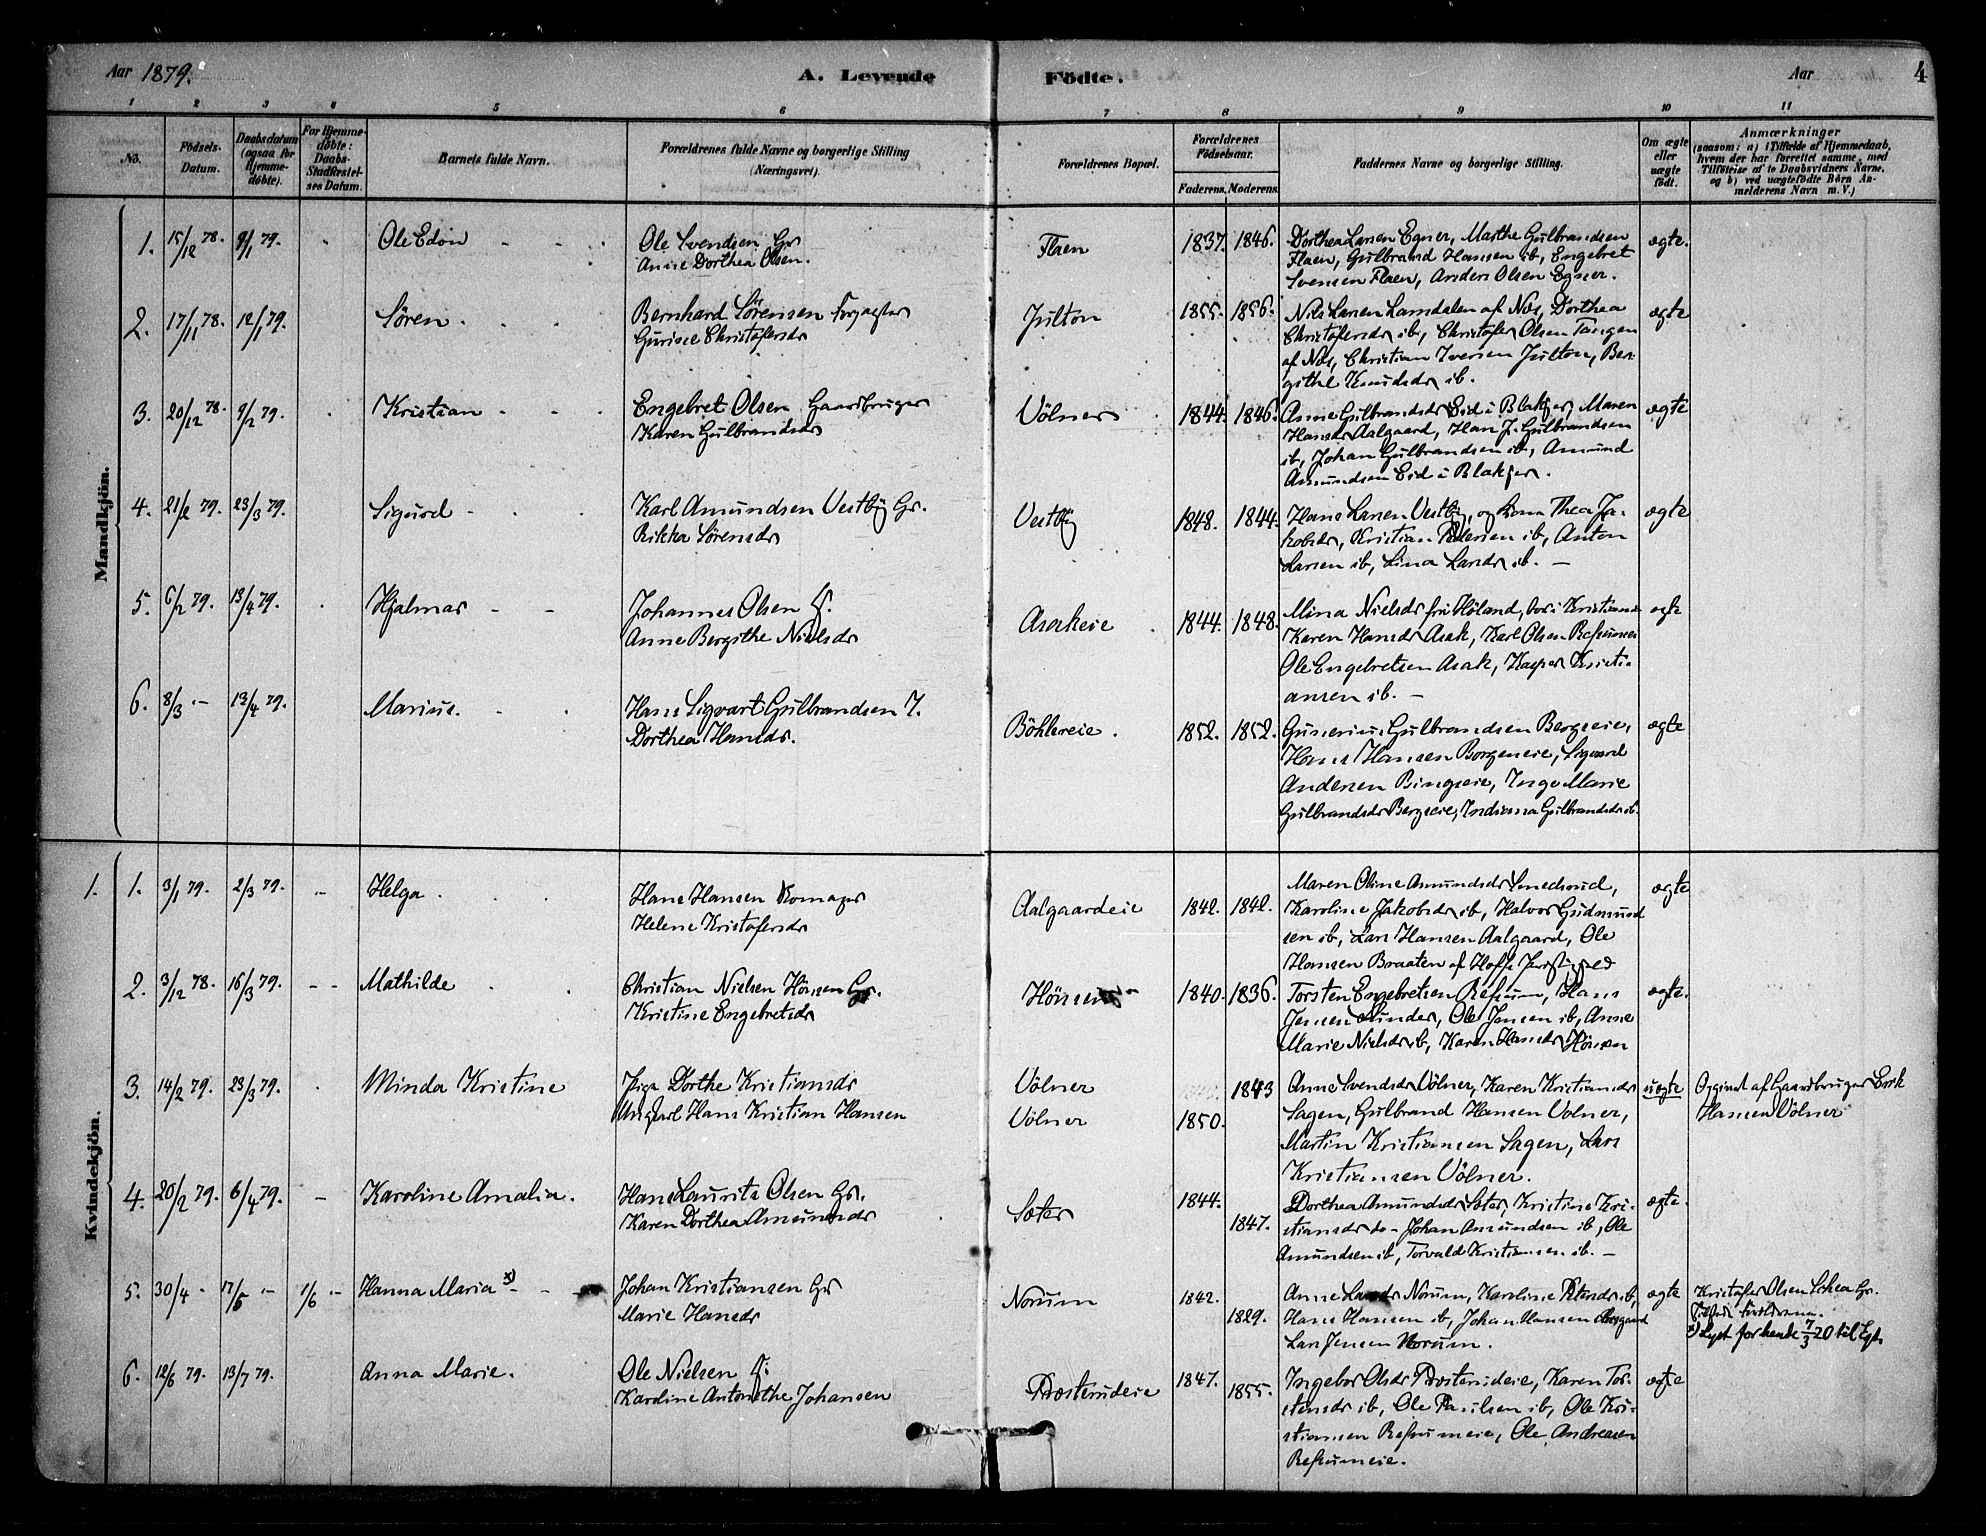 Aar 1879. A. Levende Födte. Aar 4
1 2 3 4 5 6 7 8 9 10 11
No. Födsels-Datum. Daabsdatum (ogsaa for Hjemme-döbte). For Hjemme-döbte: Daabs-Stadfæstel-ses Datum. Barnets fulde Navn. Forældrenes fulde Navne og borgerlige Stilling (Næringsvei). Forældrenes Bopæl. Forældrenes Födselsaar. Faderens. Moderens. Faddernes Navne og borgerlige Stilling. Om ægte eller uægte födt. Anmærkninger (saasom: a) i Tilfælde af Hjemmedaab, hvem der har forrettet samme, med Tilföielse af to Daabsvidners Navne, og b) ved uægtefödte Börn An-melderens Navn m. V.)
Mandkjön.
1. 15/12 78. 9/1 79. Ole Edon Ole Svendsen Gr Flaen 1837. 1846. Dorthea Larsen Egner, Marthe Gulbrandsen ægte.
Anne Dorthea Olsen. Flaen, Gulbrand Hansen ib, Engebret
Svensen Flaen, Anders Olsen Egner.
2. 17/11 78. 12/1 79. Sören. Bernhard Sörensen Forpagter Julton 1855. 1856. Nils Larsen Lamdalen af Næs, Dorthea ægte
Gurine Christofersdr Christofersdr ib, Christofer Olsen Tangen
af Næs, Christian Iversen Julton, Ber-
githe Knudsdr ib.
3. 20/12 78. 9/2 79. Kristian Engebret Olsen Gaardbruger Völner 1844. 1846. Anne Gulbrandsdr Eid i Blakjer, Maren ægte
Karen Gulbrandsdr Hansdr Aalgaard, Hans J. Gulbrandsen
ib, Johan Gulbrandsen ib, Amund
Amundsen Eid i Blakjer.
4. 21/2 79. 23/3 79. Sigurd Karl Amundsen Vestby Gr. Vestby 1848. 1844. Hans Larsen Vestby, og Kone Thea Ja- ægte
Rikka Sörensdr kobsdr, Kristian Pedersen ib, Anton
Larsen ib, Lina Larsdr ib.
5. 6/2 79. 13/4 79. Hjalmar Johannes Olsen Asakeie 1844. 1848. Mina Nielsdr fra Höland, bor i Kristiania ægte
Anne Bergithe Nielsdr Karen Hansdr Asak, Karl Olsen
Ole Engebretsen Asak, Kasper Kristi-
ansen ib.
6. 8/3 - 13/4 79. Marius. Hans Sigvart Gulbrandsen I. Böhlereie. 1852. 1852. Gunerius Gulbrandsen Bergseie, ægte
Dorthea Hansdr. Hans Hansen Borgeneie, Sigvard
Andersen Bingseie, Inge Marie
Gulbrandsdr Bergseie, Indiana Gulbrandsdr ib.
Kvindekjön.
1. 1. 3/1 79. 2/3 79. Helga Hans Hansen Aalgaardeie 1842. 1842. Maren Oline Amundsdr ægte
Helene Kristofersdr Karoline Jakobsdr ib, Halvor Gudmund
sen ib, Lars Hansen Aalgaard, Ole
Hansen Braaten af
2. 3/12 78. 16/3 79. Mathilde Christian Nielsen Hönsen Gr. Hönsen 1840. 1836. Torsten Engebretsen Refsum, Hans ægte.
Kristine Engebretsdr Jensen Sunder, Ole Jensen ib, Anne
Marie Nielsdr ib, Karen Hansdr Hönsen
3. 14/2 79. 23/3 79. Minda Kristine Pige Dorthe Kristiansdr Völner 1843 Anne Svendsdr Völner, Karen Kristiansdr uægte Opgivet af Gaardbruger Erik
Ungkarl Hans Kristian Hansen Völner 1850. Sagen, Gulbrand Hansen Volner, Hansen Völner
Martin Kristiansen Sagen, Lars
Kristiansen Völner.
4. 20/2 79. 6/4 79. Karoline Amalia. Hans Laurits Olsen Gr. Sæter 1844. Dorthea Amundsdr Sæter, Kristine Kri- ægte.
Karen Dorthea Amundsdr 1847. stiansdr do - Johan Amundsen ib, Ole
Amundsen ib, Torvald Kristiansen ib.
5. 30/4 - 17/5 - 1/6 - Hanna Maria x) Johan Kristiansen Gr Norum 1842. Anne Larsdr Norum, Karoline Petersdr ib, ægte Kristofer Olsen Gr.
Marie Hansdr 1829. Hans Hansen ib, Johan Hansen
Lars Jensen Norum. x) Lyst for hende 7/3 20 til Egt.
6. 12/6 79. 13/7 79. Anna Marie. Ole Nielsen Præsterudeie 1847. Ingebor Olsdr Præsterudeie, Karen Tor- ægte
Karoline Antonethe Johansen 1855. stensdr ib, Ole Paulsen ib, Ole Kri-
stiansen Refsumeie, Ole Andreasen
Refsumeie.